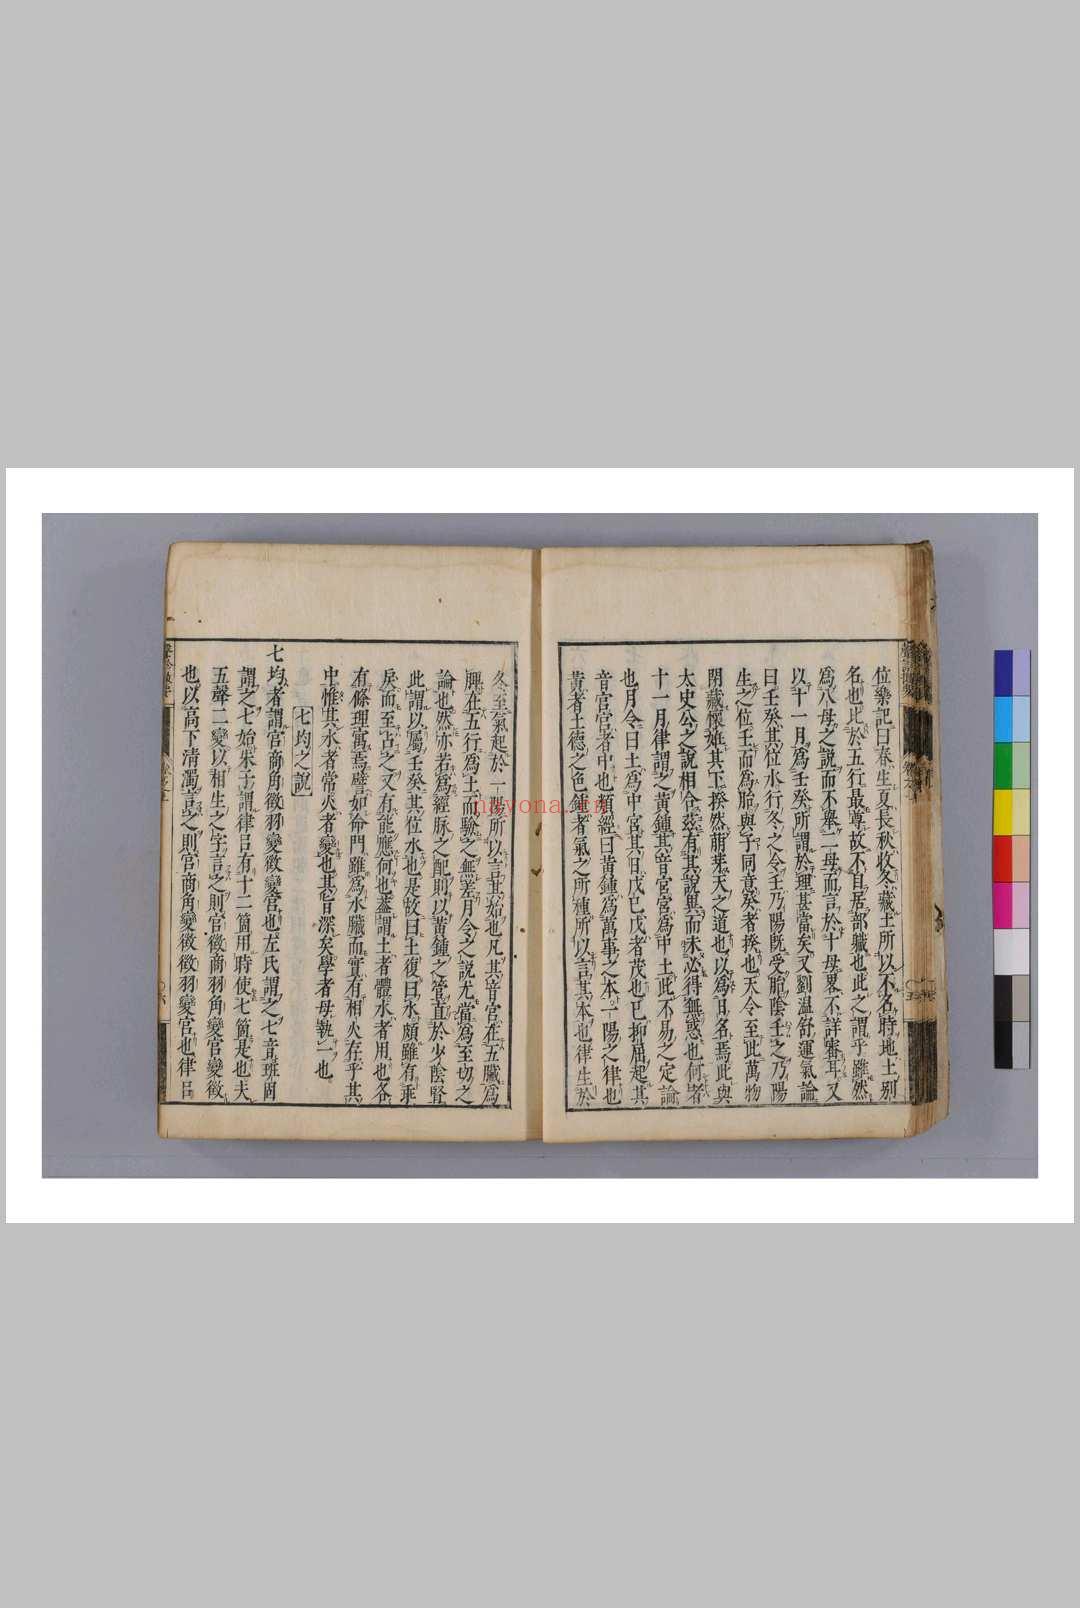 位樂記曰春生夏長秋收冬藏土所以不名時地土別
名也此於五行最尊故不自居部職也此之謂乎雖然
爲八母之說而不舉二母而言於十母畧不詳審耳又
以十一月爲壬癸所謂於理甚當矣又劉溫舒運氣論
曰壬癸其位水行冬之令壬乃陽既受胎陰壬之乃陽
生之位壬而爲胎與子同意癸者揆也天令至此萬物
閉藏懷妊其下揆然萠芽天之道也以爲日名焉此與
太史公之說相合茲有其說異而未必得無惑也何者
十一月律謂之黃鍾其音宮宮爲中土此不易之定論
也月令曰土爲中宮其日戊己戊者茂也己抑屈起其
音宮宮者中也類經曰黃鍾爲萬事之本一陽之律也
黃者土德之色鍾者氣之所種所以言其本也律生於
冬至氣起於一陽所以言其始也凡其音宮在五臟爲
脾在五行爲土而驗之無差月令之說尤當爲至切之
論也然亦若爲經脉之配則以黃鍾之管直於少陰腎
此謂以屬壬癸其位水也是故曰土復曰水頗雖有乖
戾而至占之又有能應何也蓋謂土者體水者用也各
有條理寓焉譬如命門雖爲水臟而實有相火在乎其
中惟其水者常火者變也其旨深矣學者毋執一也
七均之說
七均者謂宮商角徵羽變徵變宮也左氏謂之七音班固
謂之七始朱子謂律呂有十二箇用時使七箇是也夫
五聲二變以相生之字言之則宮徵商羽角變宮變徵
也以高下清濁言之則宮商角變徵徵羽變宮也律呂
nayona.cn